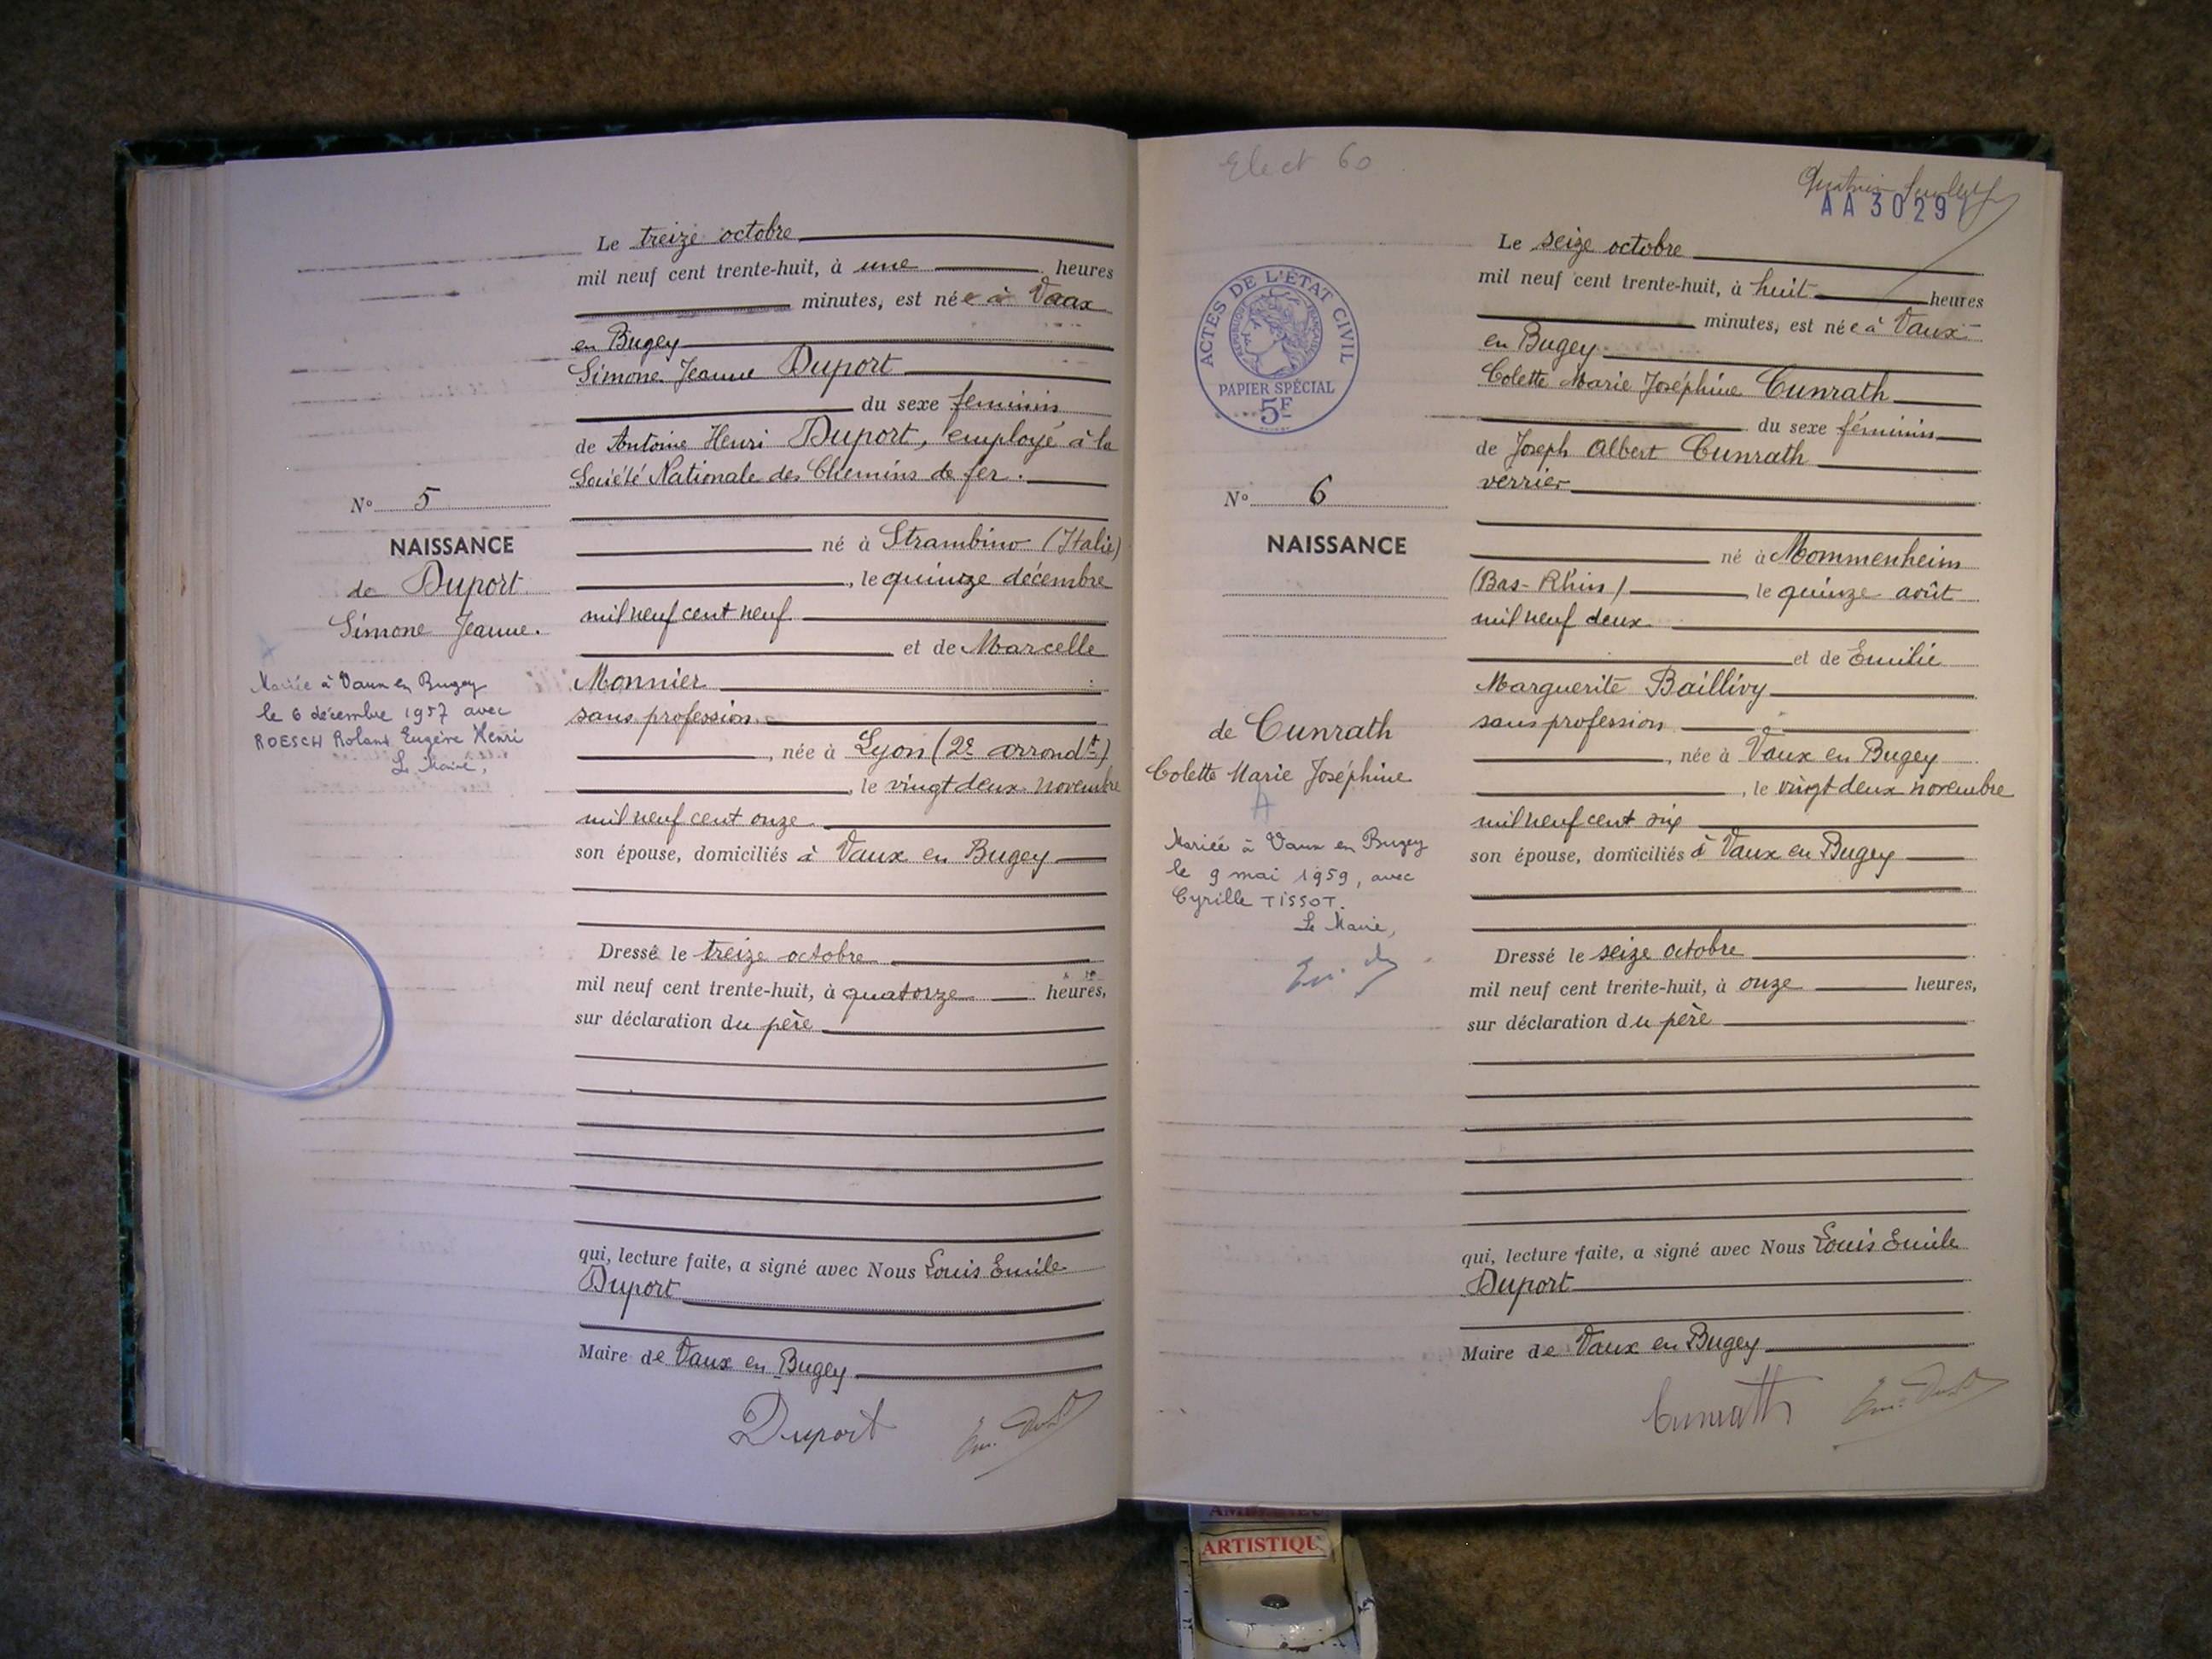 Le treize octobre
mil neuf cent trente-huit, à une heures
minutes, est née à Vaux
en Bugey
Simone Jeanne Duport
du sexe féminin
de Antoine Henri Duport, employé à la
Société Nationale des Chemins de fer.
N° 5
NAISSANCE
de Duport
Simone Jeanne.
Mariée à Vaux en Bugey
le 6 décembre 1957 avec
ROESCH Roland Eugène Henri
Le Maire,
né à Strambino (Italie)
, le quinze décembre
mil neuf cent neuf
et de Marcelle
Monnier
sans profession
, née à Lyon (2e arrondt)
, le vingt deux novembre
mil neuf cent onze
son épouse, domiciliés à Vaux en Bugey
Dressé le treize octobre
mil neuf cent trente-huit, à quatorze heures,
sur déclaration du père
qui, lecture faite, a signé avec Nous Louis Emile
Duport
Maire de Vaux en Bugey
Duport
Elect 60
AA3029
Le seize octobre
mil neuf cent trente-huit, à huit heures
minutes, est née à Vaux
en Bugey
Colette Marie Joséphine Cunrath
du sexe féminin
de Joseph Albert Cunrath
verrier
ACTES DE L'ÉTAT CIVIL
PAPIER SPÉCIAL
5F
N° 6
NAISSANCE
de Cunrath
Colette Marie Joséphine
Mariée à Vaux en Bugey
le 9 mai 1959, avec
Cyrille TISSOT.
Le Maire,
né à Mommenheim
(Bas-Rhin) le quinze août
mil neuf deux
et de Emilie
Marguerite Baillivy
sans profession
, née à Vaux en Bugey
, le vingt deux novembre
mil neuf cent six
son épouse, domiciliés à Vaux en Bugey
Dressé le seize octobre
mil neuf cent trente-huit, à onze heures,
sur déclaration du père
qui, lecture faite, a signé avec Nous Louis Emile
Duport
Maire de Vaux en Bugey
Cunrath
ARTISTIQU